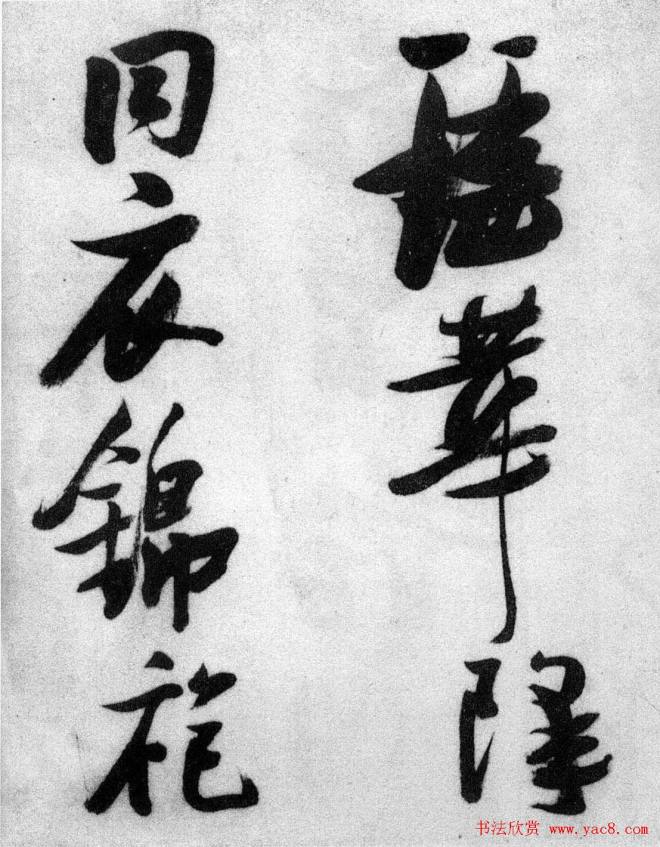 華隆
同衣錦袍
书法欣赏 www.yac8.com